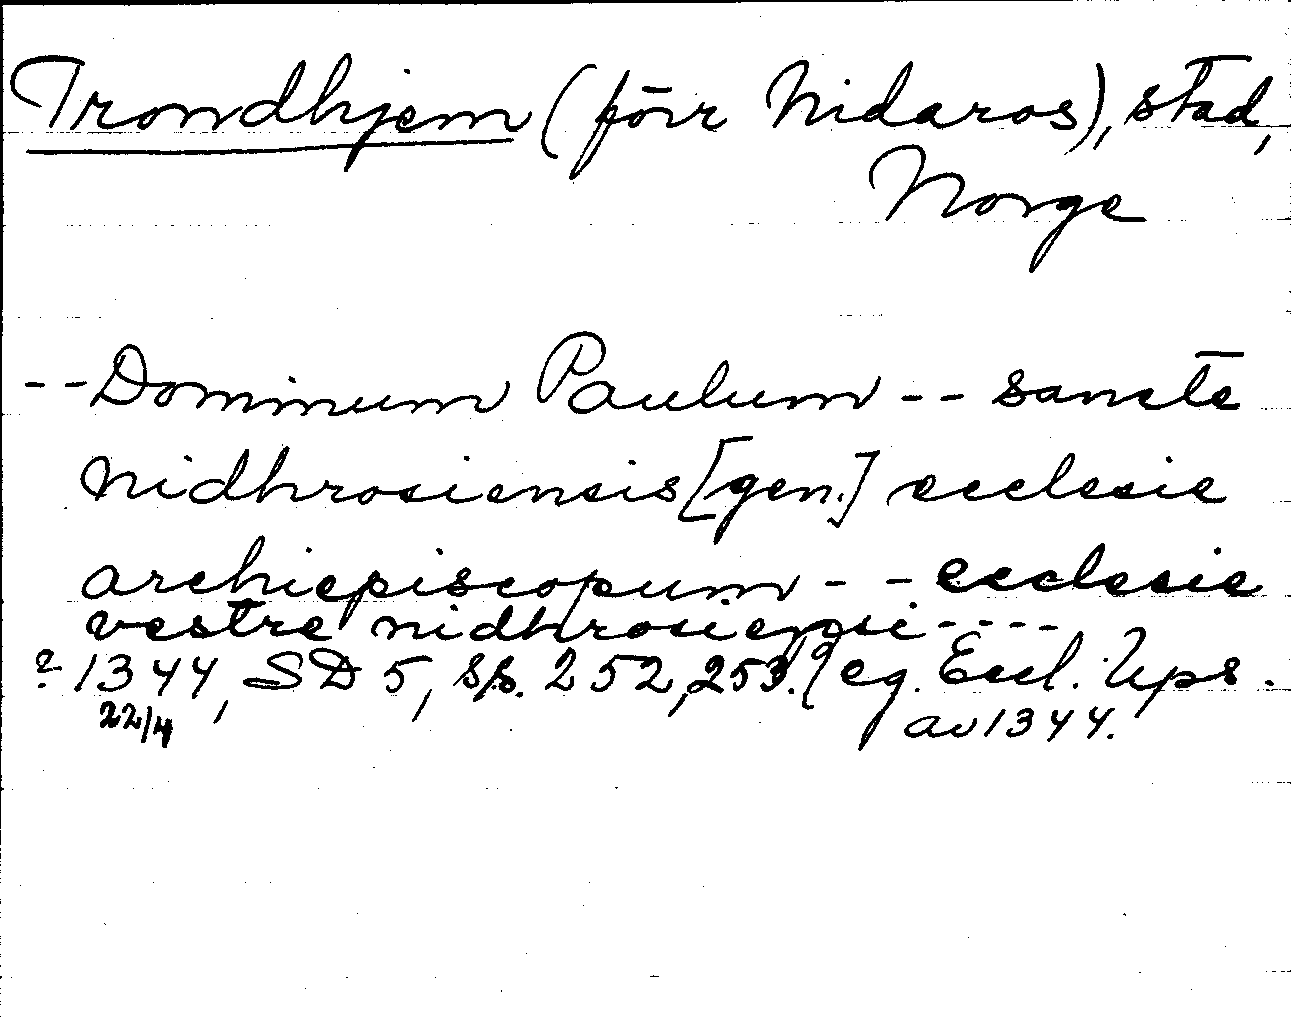 Trondhjem (förr Nidaros), stad,
Norge
-- Dominum Paulum -- sancte
nidhrosiensis [gen.] ecclesie
archiepiscopum -- ecclesie
vestre nidhrosiensi ----
? 1344, SD 5, s/s. 252, 253. Reg. Eccl. Ups.
22/4 av 1344.